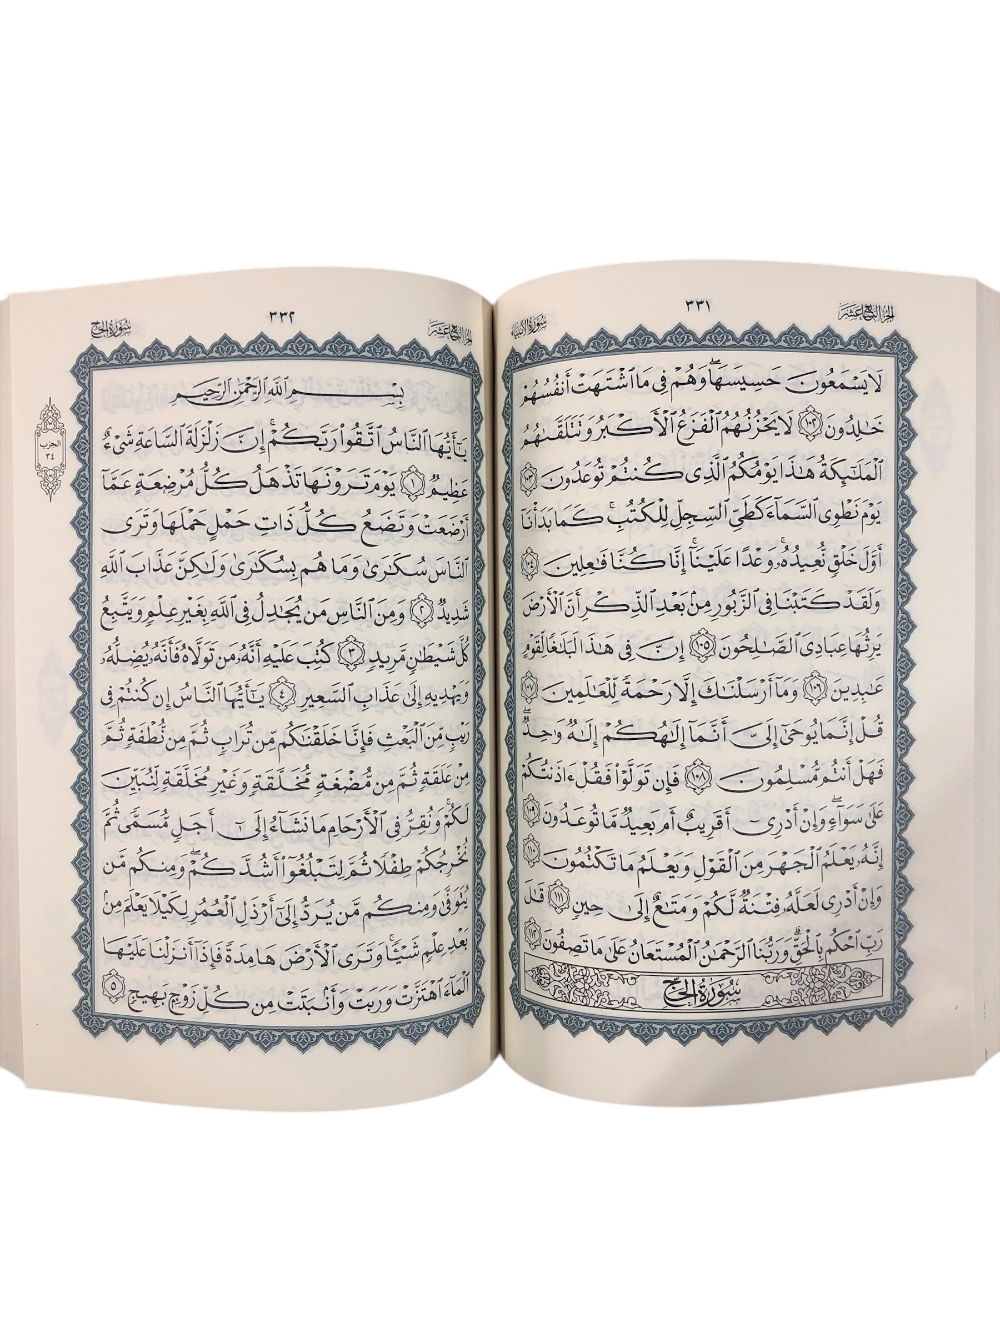 الجزء السابع عشر
٣٣١
سورة الأنبياء
لَا يَسْمَعُونَ حَسِيسَهَا ۖ وَهُمْ فِي مَا ٱشْتَهَتْ أَنفُسُهُمْ
خَٰلِدُونَ ١٠٢ لَا يَحْزُنُهُمُ ٱلْفَزَعُ ٱلْأَكْبَرُ وَتَتَلَقَّىٰهُمُ
ٱلْمَلَٰٓئِكَةُ هَٰذَا يَوْمُكُمُ ٱلَّذِي كُنتُمْ تُوعَدُونَ ١٠٣
يَوْمَ نَطْوِي ٱلسَّمَآءَ كَطَيِّ ٱلسِّجِلِّ لِلْكُتُبِ ۚ كَمَا بَدَأْنَآ
أَوَّلَ خَلْقٍ نُّعِيدُهُۥ ۚ وَعْدًا عَلَيْنَآ ۚ إِنَّا كُنَّا فَٰعِلِينَ ١٠٤
وَلَقَدْ كَتَبْنَا فِي ٱلزَّبُورِ مِنۢ بَعْدِ ٱلذِّكْرِ أَنَّ ٱلْأَرْضَ
يَرِثُهَا عِبَادِيَ ٱلصَّٰلِحُونَ ١٠٥ إِنَّ فِي هَٰذَا لَبَلَٰغًا لِّقَوْمٍ
عَٰبِدِينَ ١٠٦ وَمَآ أَرْسَلْنَٰكَ إِلَّا رَحْمَةً لِّلْعَٰلَمِينَ ١٠٧
قُلْ إِنَّمَا يُوحَىٰٓ إِلَيَّ أَنَّمَآ إِلَٰهُكُمْ إِلَٰهٌ وَٰحِدٌ ۖ
فَهَلْ أَنتُم مُّسْلِمُونَ ١٠٨ فَإِن تَوَلَّوْا۟ فَقُلْ ءَاذَنتُكُمْ
عَلَىٰ سَوَآءٍ ۖ وَإِنْ أَدْرِيٓ أَقَرِيبٌ أَم بَعِيدٌ مَّا تُوعَدُونَ ١٠٩
إِنَّهُۥ يَعْلَمُ ٱلْجَهْرَ مِنَ ٱلْقَوْلِ وَيَعْلَمُ مَا تَكْتُمُونَ ١١٠
وَإِنْ أَدْرِي لَعَلَّهُۥ فِتْنَةٌ لَّكُمْ وَمَتَٰعٌ إِلَىٰ حِينٍ ١١١ قَٰلَ
رَبِّ ٱحْكُم بِٱلْحَقِّ ۗ وَرَبُّنَا ٱلرَّحْمَٰنُ ٱلْمُسْتَعَانُ عَلَىٰ مَا تَصِفُونَ ١١٢
سُورَةُ الحَجِّ
الجزء السابع عشر
٣٣٢
سورة الحج
بِسْمِ ٱللَّهِ ٱلرَّحْمَٰنِ ٱلرَّحِيمِ
يَٰٓأَيُّهَا ٱلنَّاسُ ٱتَّقُوا۟ رَبَّكُمْ ۚ إِنَّ زَلْزَلَةَ ٱلسَّاعَةِ شَيْءٌ
عَظِيمٌ ١ يَوْمَ تَرَوْنَهَا تَذْهَلُ كُلُّ مُرْضِعَةٍ عَمَّآ
أَرْضَعَتْ وَتَضَعُ كُلُّ ذَاتِ حَمْلٍ حَمْلَهَا وَتَرَى
ٱلنَّاسَ سُكَٰرَىٰ وَمَا هُم بِسُكَٰرَىٰ وَلَٰكِنَّ عَذَابَ ٱللَّهِ
شَدِيدٌ ٢ وَمِنَ ٱلنَّاسِ مَن يُجَٰدِلُ فِي ٱللَّهِ بِغَيْرِ عِلْمٍ وَيَتَّبِعُ
كُلَّ شَيْطَٰنٍ مَّرِيدٍ ٣ كُتِبَ عَلَيْهِ أَنَّهُۥ مَن تَوَلَّاهُ فَأَنَّهُۥ يُضِلُّهُۥ
وَيَهْدِيهِ إِلَىٰ عَذَابِ ٱلسَّعِيرِ ٤ يَٰٓأَيُّهَا ٱلنَّاسُ إِن كُنتُمْ فِي
رَيْبٍ مِّنَ ٱلْبَعْثِ فَإِنَّا خَلَقْنَٰكُم مِّن تُرَابٍ ثُمَّ مِن نُّطْفَةٍ ثُمَّ
مِنْ عَلَقَةٍ ثُمَّ مِن مُّضْغَةٍ مُّخَلَّقَةٍ وَغَيْرِ مُخَلَّقَةٍ لِّنُبَيِّنَ
لَكُمْ ۚ وَنُقِرُّ فِي ٱلْأَرْحَامِ مَا نَشَآءُ إِلَىٰٓ أَجَلٍ مُّسَمًّى ثُمَّ
نُخْرِجُكُمْ طِفْلًا ثُمَّ لِتَبْلُغُوٓا۟ أَشُدَّكُمْ ۖ وَمِنكُم مَّن
يُتَوَفَّىٰ وَمِنكُم مَّن يُرَدُّ إِلَىٰٓ أَرْذَلِ ٱلْعُمُرِ لِكَيْلَا يَعْلَمَ مِنۢ
بَعْدِ عِلْمٍ شَيْـًٔا ۚ وَتَرَى ٱلْأَرْضَ هَامِدَةً فَإِذَآ أَنزَلْنَا عَلَيْهَا
ٱلْمَآءَ ٱهْتَزَّتْ وَرَبَتْ وَأَنۢبَتَتْ مِن كُلِّ زَوْجٍۭ بَهِيجٍ ٥
الحزب
٣٤